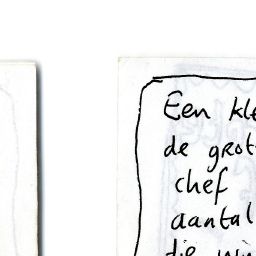 Een kle
de grot
chef
aantal
die